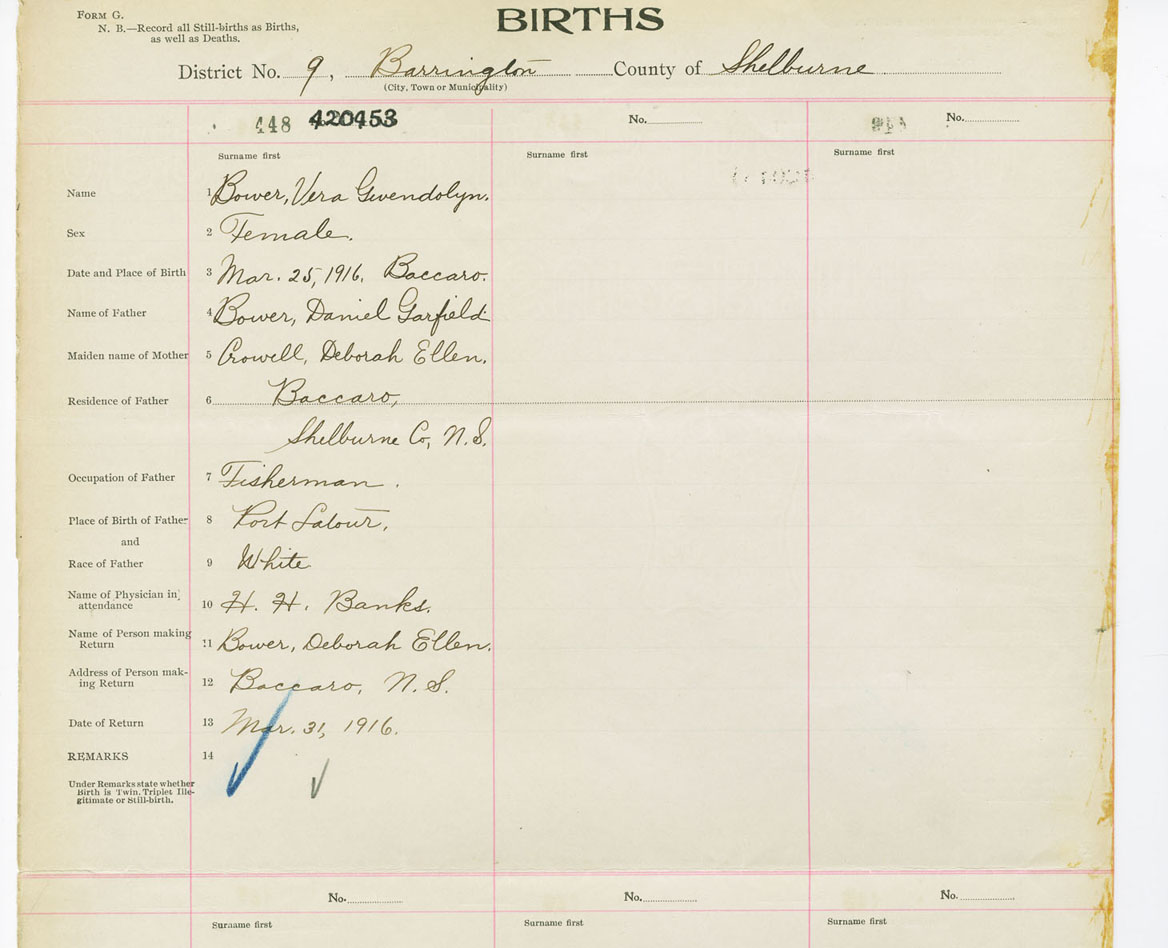 FORM G.
BIRTHS
N. B.—Record all Still-births as Births,
as well as Deaths.
District No. 9, Barrington County of Shelburne
(City, Town or Municipality)
448 420453 No. No.
Surname first Surname first Surname first
Name 1 Bower, Vera Gwendolyn.
Sex 2 Female.
Date and Place of Birth 3 Mar. 25, 1916. Baccaro.
Name of Father 4 Bower, Daniel Garfield
Maiden name of Mother 5 Crowell, Deborah Ellen.
Residence of Father 6 Baccaro,
Shelburne Co, N.S.
Occupation of Father 7 Fisherman.
Place of Birth of Father 8 Port Latour,
and
Race of Father 9 White
Name of Physician in
attendance 10 H. H. Banks.
Name of Person making
Return 11 Bower, Deborah Ellen.
Address of Person mak-
ing Return 12 Baccaro, N.S.
Date of Return 13 Mar. 31, 1916.
REMARKS 14
Under Remarks state whether
Birth is Twin, Triplet Ille-
gitimate or Still-birth.
No. No. No.
Surname first Surname first Surname first